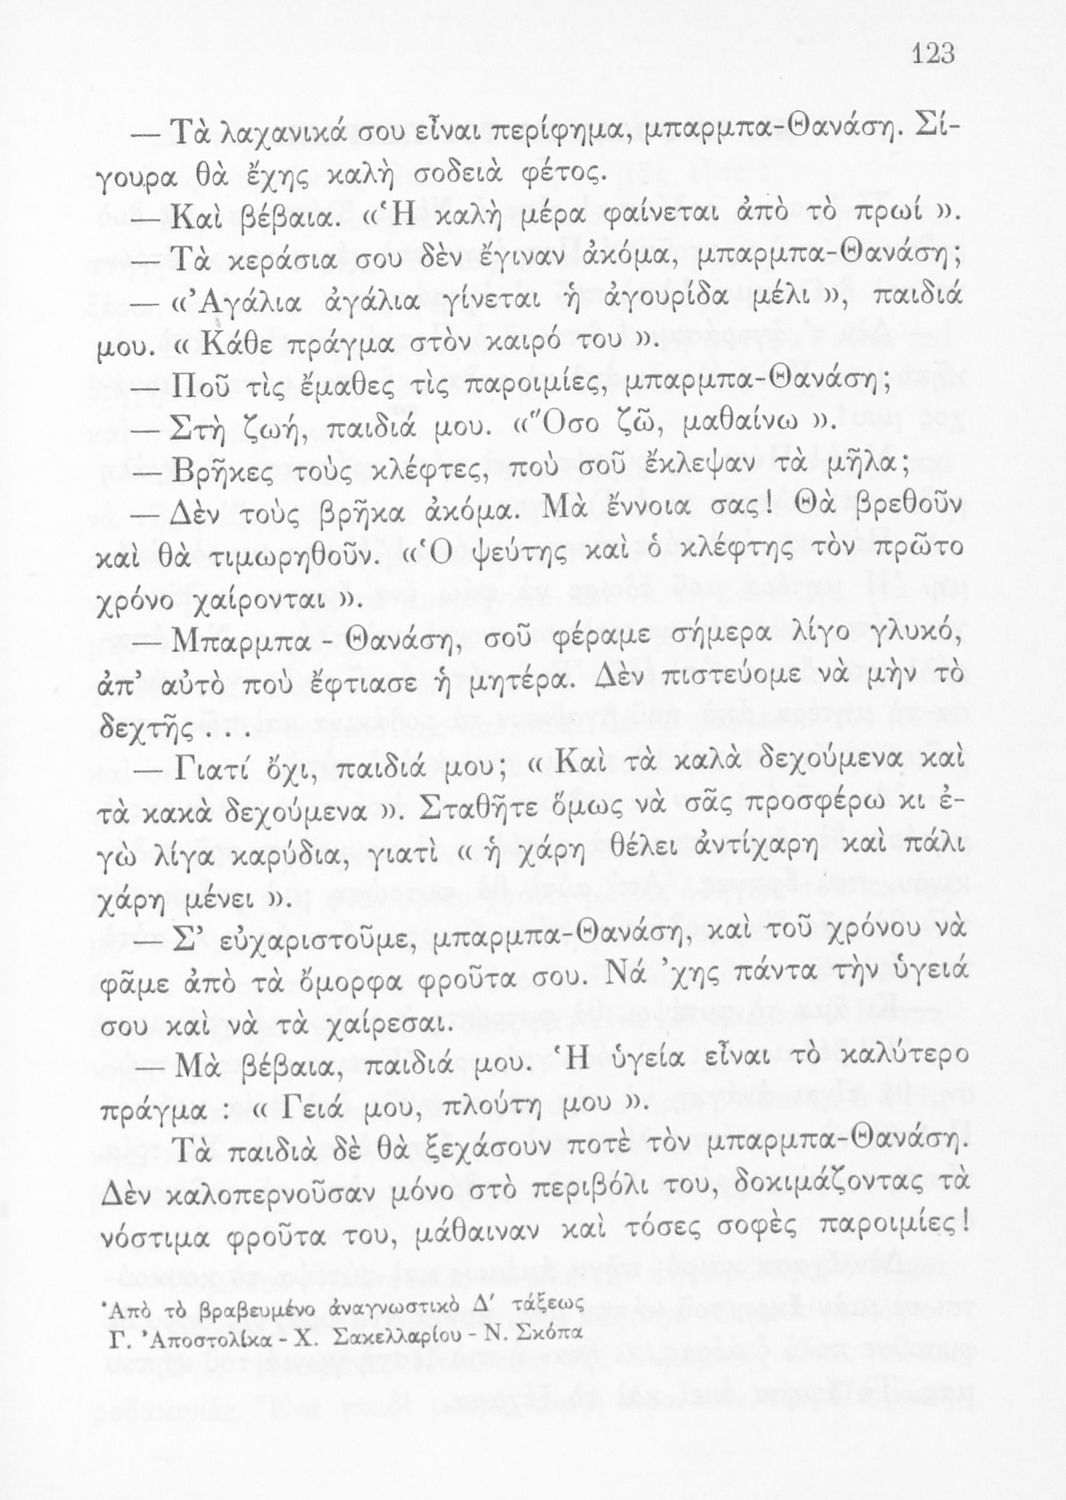 123
— Τὰ λαχανικά σου εἶναι περίφημα, μπαρμπα-Θανάση. Σί-
γουρα θὰ ἔχης καλὴ σοδειὰ φέτος.
Καὶ βέβαια. «Ἡ καλὴ μέρα φαίνεται ἀπὸ τὸ πρωί ».
— Τὰ κεράσια σου δὲν ἔγιναν ἀκόμα, μπαρμπα-Θανάση;
— «Ἀγάλια ἀγάλια γίνεται ἡ ἀγουρίδα μέλι », παιδιά
μου. « Κάθε πράγμα στὸν καιρό του ».
— Ποῦ τὶς ἔμαθες τὶς παροιμίες, μπαρμπα-Θανάση;
— Στὴ ζωή, παιδιά μου. «Ὅσο ζῶ, μαθαίνω ».
— Βρῆκες τοὺς κλέφτες, ποὺ σοῦ ἔκλεψαν τὰ μῆλα;
— Δὲν τοὺς βρῆκα ἀκόμα. Μὰ ἔννοια σας! Θὰ βρεθοῦν
καὶ θὰ τιμωρηθοῦν. «Ὁ ψεύτης καὶ ὁ κλέφτης τὸν πρῶτο
χρόνο χαίρονται ».
— Μπαρμπα - Θανάση, σοῦ φέραμε σήμερα λίγο γλυκό,
ἀπ’ αὐτὸ ποὺ ἔφτιασε ἡ μητέρα. Δὲν πιστεύομε νὰ μὴν τὸ
δεχτῆς . . .
— Γιατί ὄχι, παιδιά μου; « Καὶ τὰ καλὰ δεχούμενα καὶ
τὰ κακὰ δεχούμενα ». Σταθῆτε ὅμως νὰ σᾶς προσφέρω κι ἐ-
γὼ λίγα καρύδια, γιατὶ « ἡ χάρη θέλει ἀντίχαρη καὶ πάλι
χάρη μένει ».
— Σ’ εὐχαριστοῦμε, μπαρμπα-Θανάση, καὶ τοῦ χρόνου νὰ
φᾶμε ἀπὸ τὰ ὄμορφα φροῦτα σου. Νά ’χης πάντα τὴν ὑγειά
σου καὶ νὰ τὰ χαίρεσαι.
— Μὰ βέβαια, παιδιά μου. Ἡ ὑγεία εἶναι τὸ καλύτερο
πράγμα : « Γειά μου, πλούτη μου ».
Τὰ παιδιὰ δὲ θὰ ξεχάσουν ποτὲ τὸν μπαρμπα-Θανάση.
Δὲν καλοπερνοῦσαν μόνο στὸ περιβόλι του, δοκιμάζοντας τὰ
νόστιμα φροῦτα του, μάθαιναν καὶ τόσες σοφὲς παροιμίες!
Ἀπὸ τὸ βραβευμένο ἀναγνωστικὸ Δ′ τάξεως
Γ. Ἀποστολίκα - Χ. Σακελλαρίου - Ν. Σκόπα